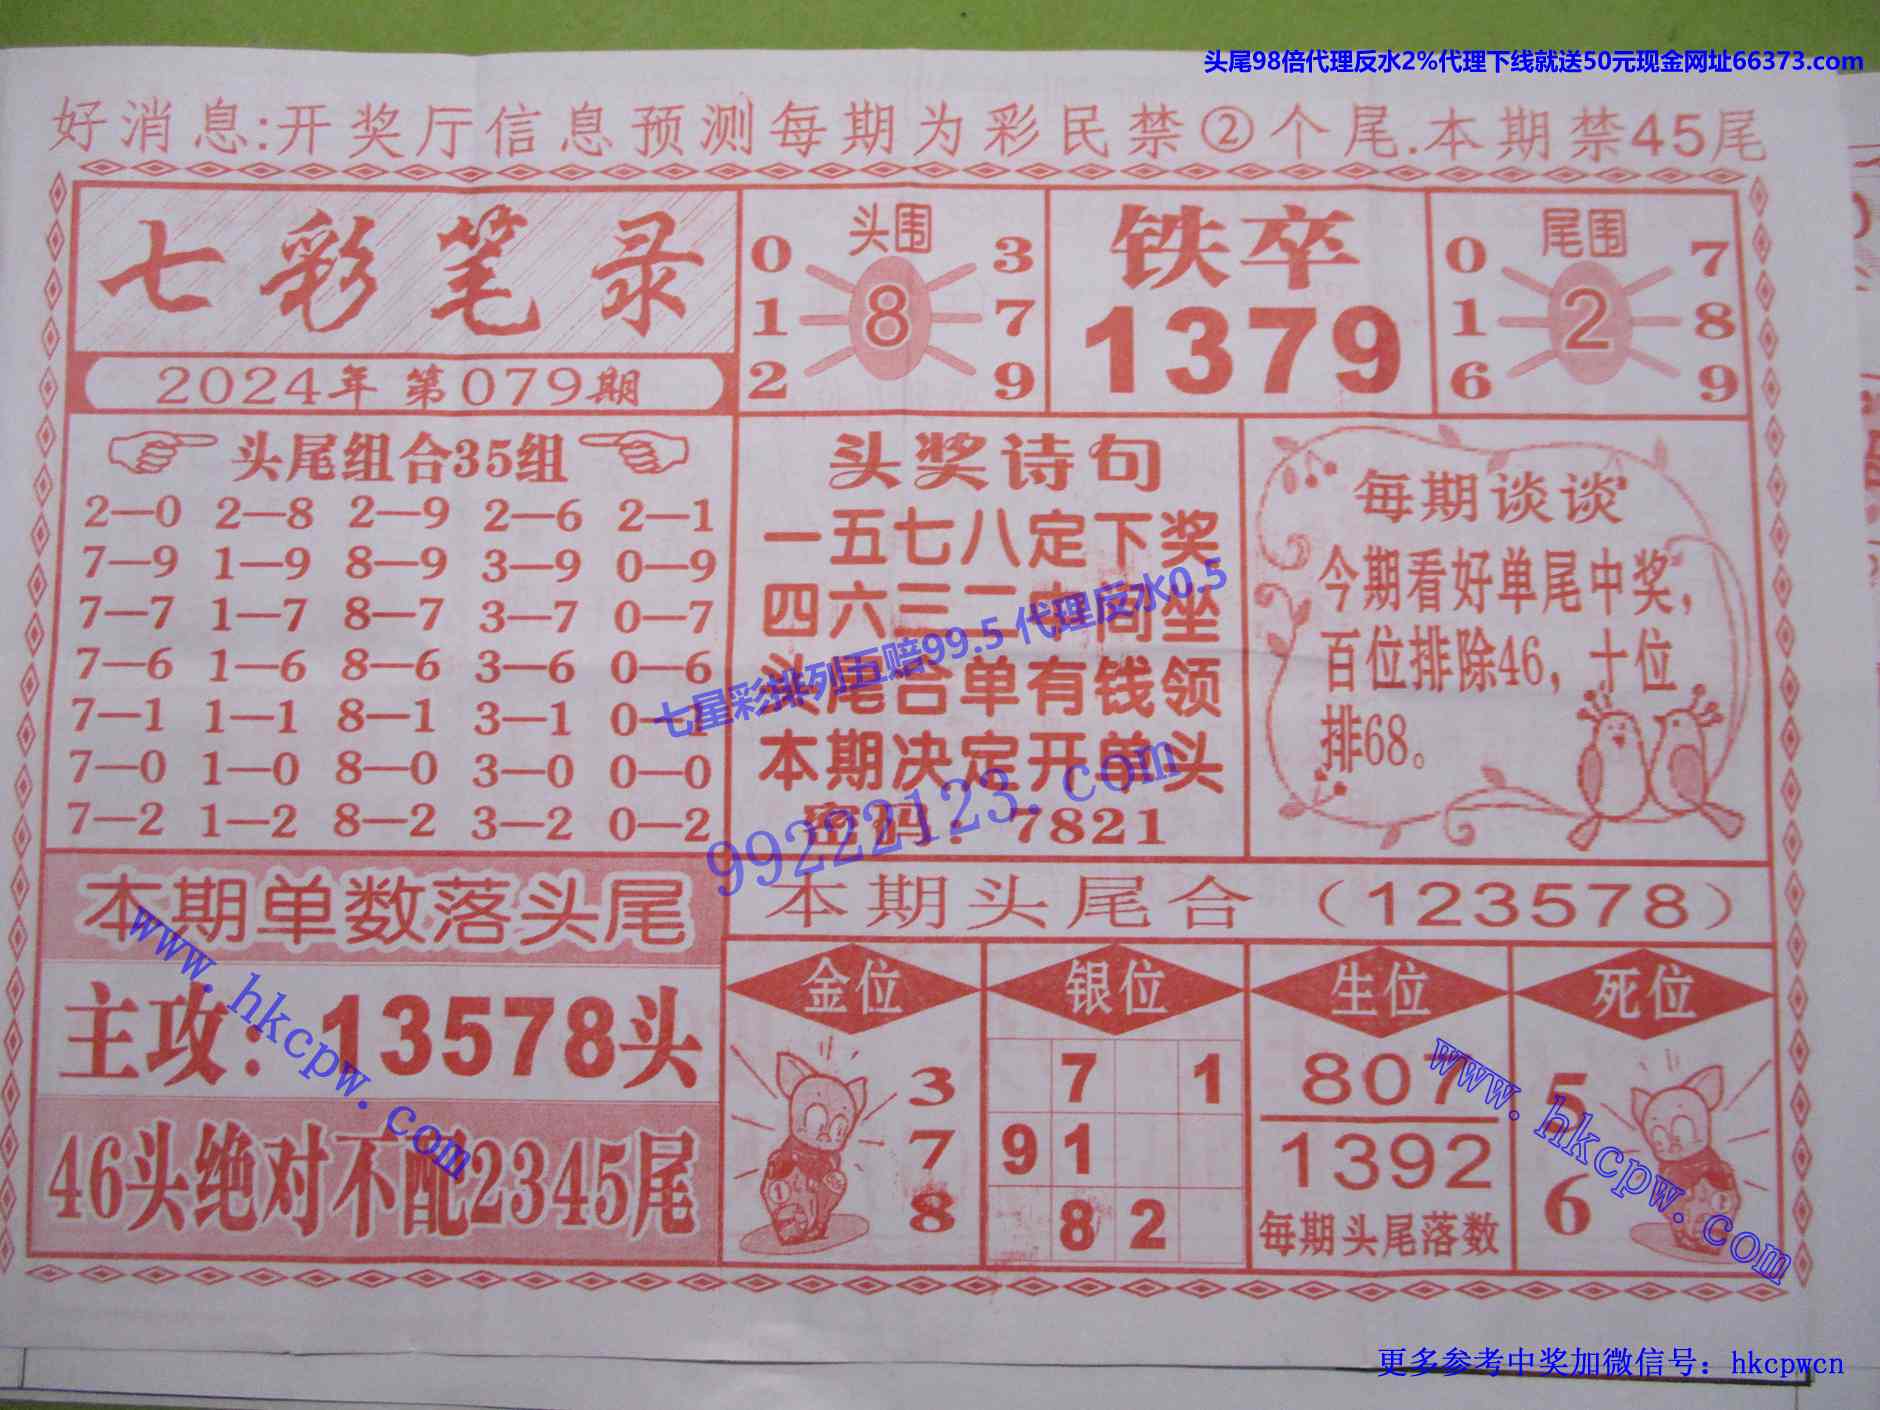 头尾98倍代理反水2%代理下线就送50元现金网址66373.com
好消息:开奖厅信息预测每期为彩民禁②个尾.本期禁45尾
七彩笔录
2024年 第079期
头围
0 3
1 8 7
2 9
铁卒
1379
尾围
0 7
1 2 8
6 9
头尾组合35组
2—0 2—8 2—9 2—6 2—1
7—9 1—9 8—9 3—9 0—9
7—7 1—7 8—7 3—7 0—7
7—6 1—6 8—6 3—6 0—6
7—1 1—1 8—1 3—1 0—1
7—0 1—0 8—0 3—0 0—0
7—2 1—2 8—2 3—2 0—2
头奖诗句
一五七八定下奖
四六三二中间坐
头尾合单有钱领
本期决定开单头
密码：7821
每期谈谈
今期看好单尾中奖，
百位排除46，十位
排68。
七星彩排列五赔99.5 代理反水0.5
99222123.com
本期单数落头尾
主攻：13578头
46头绝对不配2345尾
本期头尾合（123578）
金位
3
7
8
银位
7 1
9 1
8 2
生位
807
1392
每期头尾落数
死位
5
6
www.hkcpw.com
www.hkcpw.com
更多参考中奖加微信号：hkcpwcn